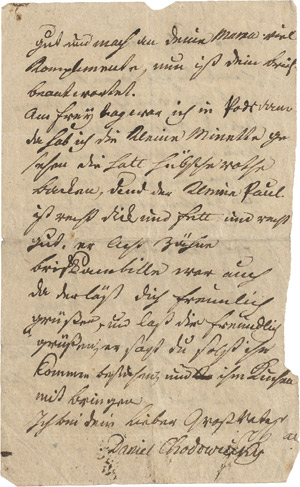 gut und mach an deine Mama viel
Komplimente, nun ist dein brief
beantwortet.
Am Freytag war ich in Potsdam
da hab ich die Kleine Minette ge
sehen die hatt hübsche rothe
backen, und der Kleine Paul
ist recht dick und fett und recht
gut. er hat zähne
war auch
da der läst dich freundlich
grüßen, und läst dir freundlich
grüßen, er sagt du solst ihn
komm besuchen, und ihm Kuchen
mit bringen
Ich bin dein lieber Gros Vater
Daniel Chodowiecky